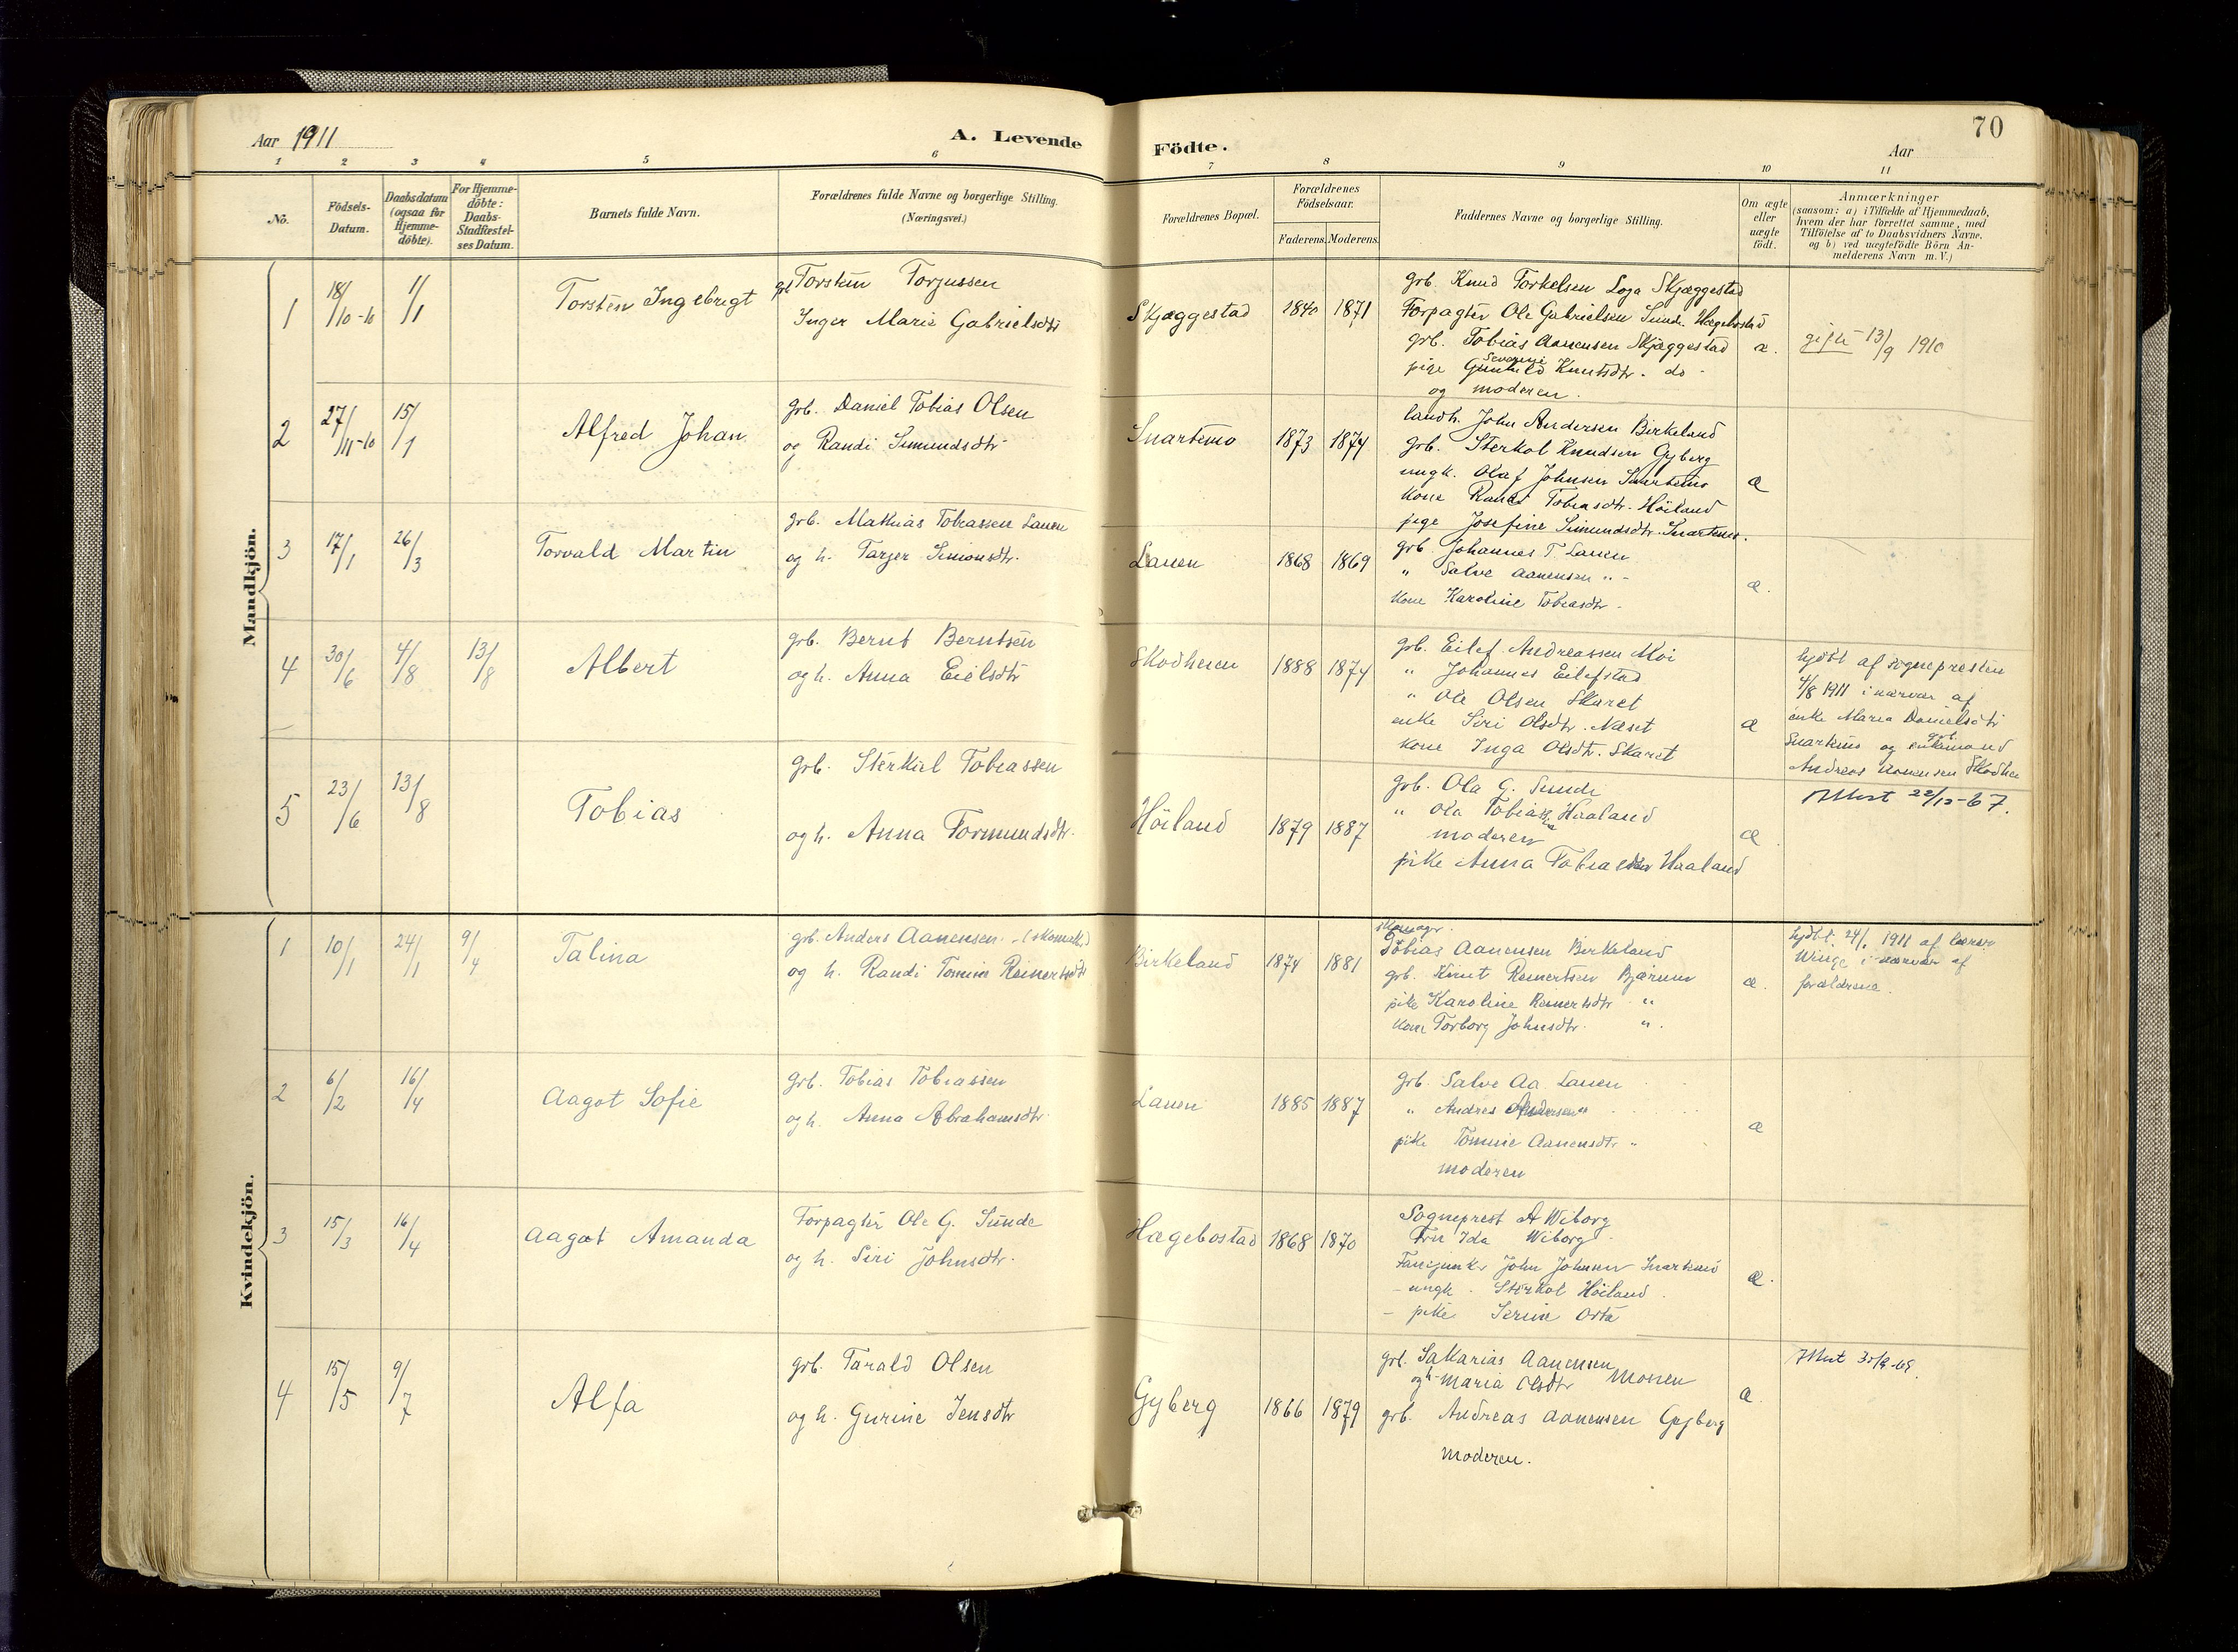 Aar 1911
A. Levende Födte.
Aar
70
1 2 3 4 5 6 7 8 9 10 11
No.
Födsels-Datum.
Daabsdatum (ogsaa for Hjemme-döbte).
For Hjemme-döbte: Daabs-Stadfæstel-ses Datum.
Barnets fulde Navn.
Forældrenes fulde Navne og borgerlige Stilling. (Næringsvei.)
Forældrenes Bopæl.
Forældrenes Födselsaar.
Faderens. Moderens.
Faddernes Navne og borgerlige Stilling.
Om ægte eller uægte födt.
Anmærkninger
(saasom: a) i Tilfælde af Hjemmedaab,
hvem der har forrettet samme, med
Tilföielse af to Daabsvidners Navne,
og b) ved uægtefödte Börn An-
melderens Navn m. V.)
Mandkjön.
1 18/10-10 1/1 Torsten Ingebrigt
grb Torstein Torjussen
Inger Marie Gabrielsdtr
Skjæggestad 1840 1871
grb. Knud Torkelsen Loga Skjæggestad
Forpagter Ole Gabrielsen Sunde. Hægebostad
grb. Tobias Aanensen Skjæggestad
pige Gunhild Knutsdtr. do
og moderen.
æ.
gifte 13/9 1910
2 27/11-10 15/1 Alfred Johan
grb. Daniel Tobias Olsen
og Randi Simundsdtr
Snartemo 1873 1874
landh. John Andersen Birkeland
grb. Sterkol Knudsen Gyberg
ungk. Olaf Johnsen Snartemo
kone Randi Tobiasdtr. Höiland
pige Josefine Simundsdtr. Snartemo.
æ
3 17/1 26/3 Torvald Martin
grb. Mathias Tobiassen Lauen
og h. Tarjer Simonsdtr.
Lauen 1868 1869
grb. Johannes T. Lauen
" Salve Aanensen " -
kone Karoline Tobiasdtr.
æ.
4 30/6 4/8 13/8 Albert
grb. Bernt Berntsen
og h. Anna Eielsdtr
Skodheien 1888 1874
grb. Eilef Andreassen Moi
" Johannes Eilefstad
" Ole Olsen Skaret
enke Siri Olsdtr. Næset
kone Inga Olsdtr. Skaret
æ
hjdbt af sognepresten
4/8 1911 i nærvær af
enke Maria Danielsdtr
Snartemo og grb. enkemand
Andreas Aanensen Skodhei
5 23/6 13/8 Tobias
grb. Sterkel Tobiassen
og h. Anna Tormundsdtr.
Höiland 1879 1887
grb. Ola G. Sunde
" Ola Tobiass. Haaland
moderen
pike Anna Tobiasdtr Haaland
æ
22/12-67.
Kvindekjön.
1 10/1 24/1 9/4 Talina
grb. Anders Aanensen - (skomak.)
og h. Randi Tomine Reinertsdtr
Birkeland 1874 1881
Tobias Aanensen Birkeland
grb. Knut Reinertsen Bjærum
pike Karoline Reinertsdtr "
kone Torborg Johnsdtr. ".
æ.
hjdbt. 24/1 1911 af lærer
Winge i nærvær af
forældrene.
2 6/2 16/4 Aagot Sofie
grb. Tobias Tobiassen
og h. Anna Abrahamsdtr
Lauen 1885 1887
grb. Salve Aa. Lauen
" Andres Andersen "
pike Tomine Aanensdtr "
moderen
æ
3 15/3 16/4 Aagot Amanda
Forpagter Ole G. Sunde
og h. Siri Johnsdtr.
Hægebostad 1868 1870
Sogneprest A Wiborg
Fru Ida Wiborg
Fanejunker John Johnsen Snartemo
- ungk. Sterkol Höiland.
- pike Serine Osta
æ.
4 15/5 9/7 Alfa
grb. Tarald Olsen
og h. Gurine Jensdtr
Gyberg 1866 1879
grb. Sakarias Aanensen
og h. Maria Olsdtr Monen
grb. Andreas Aanensen Gyberg
moderen.
æ